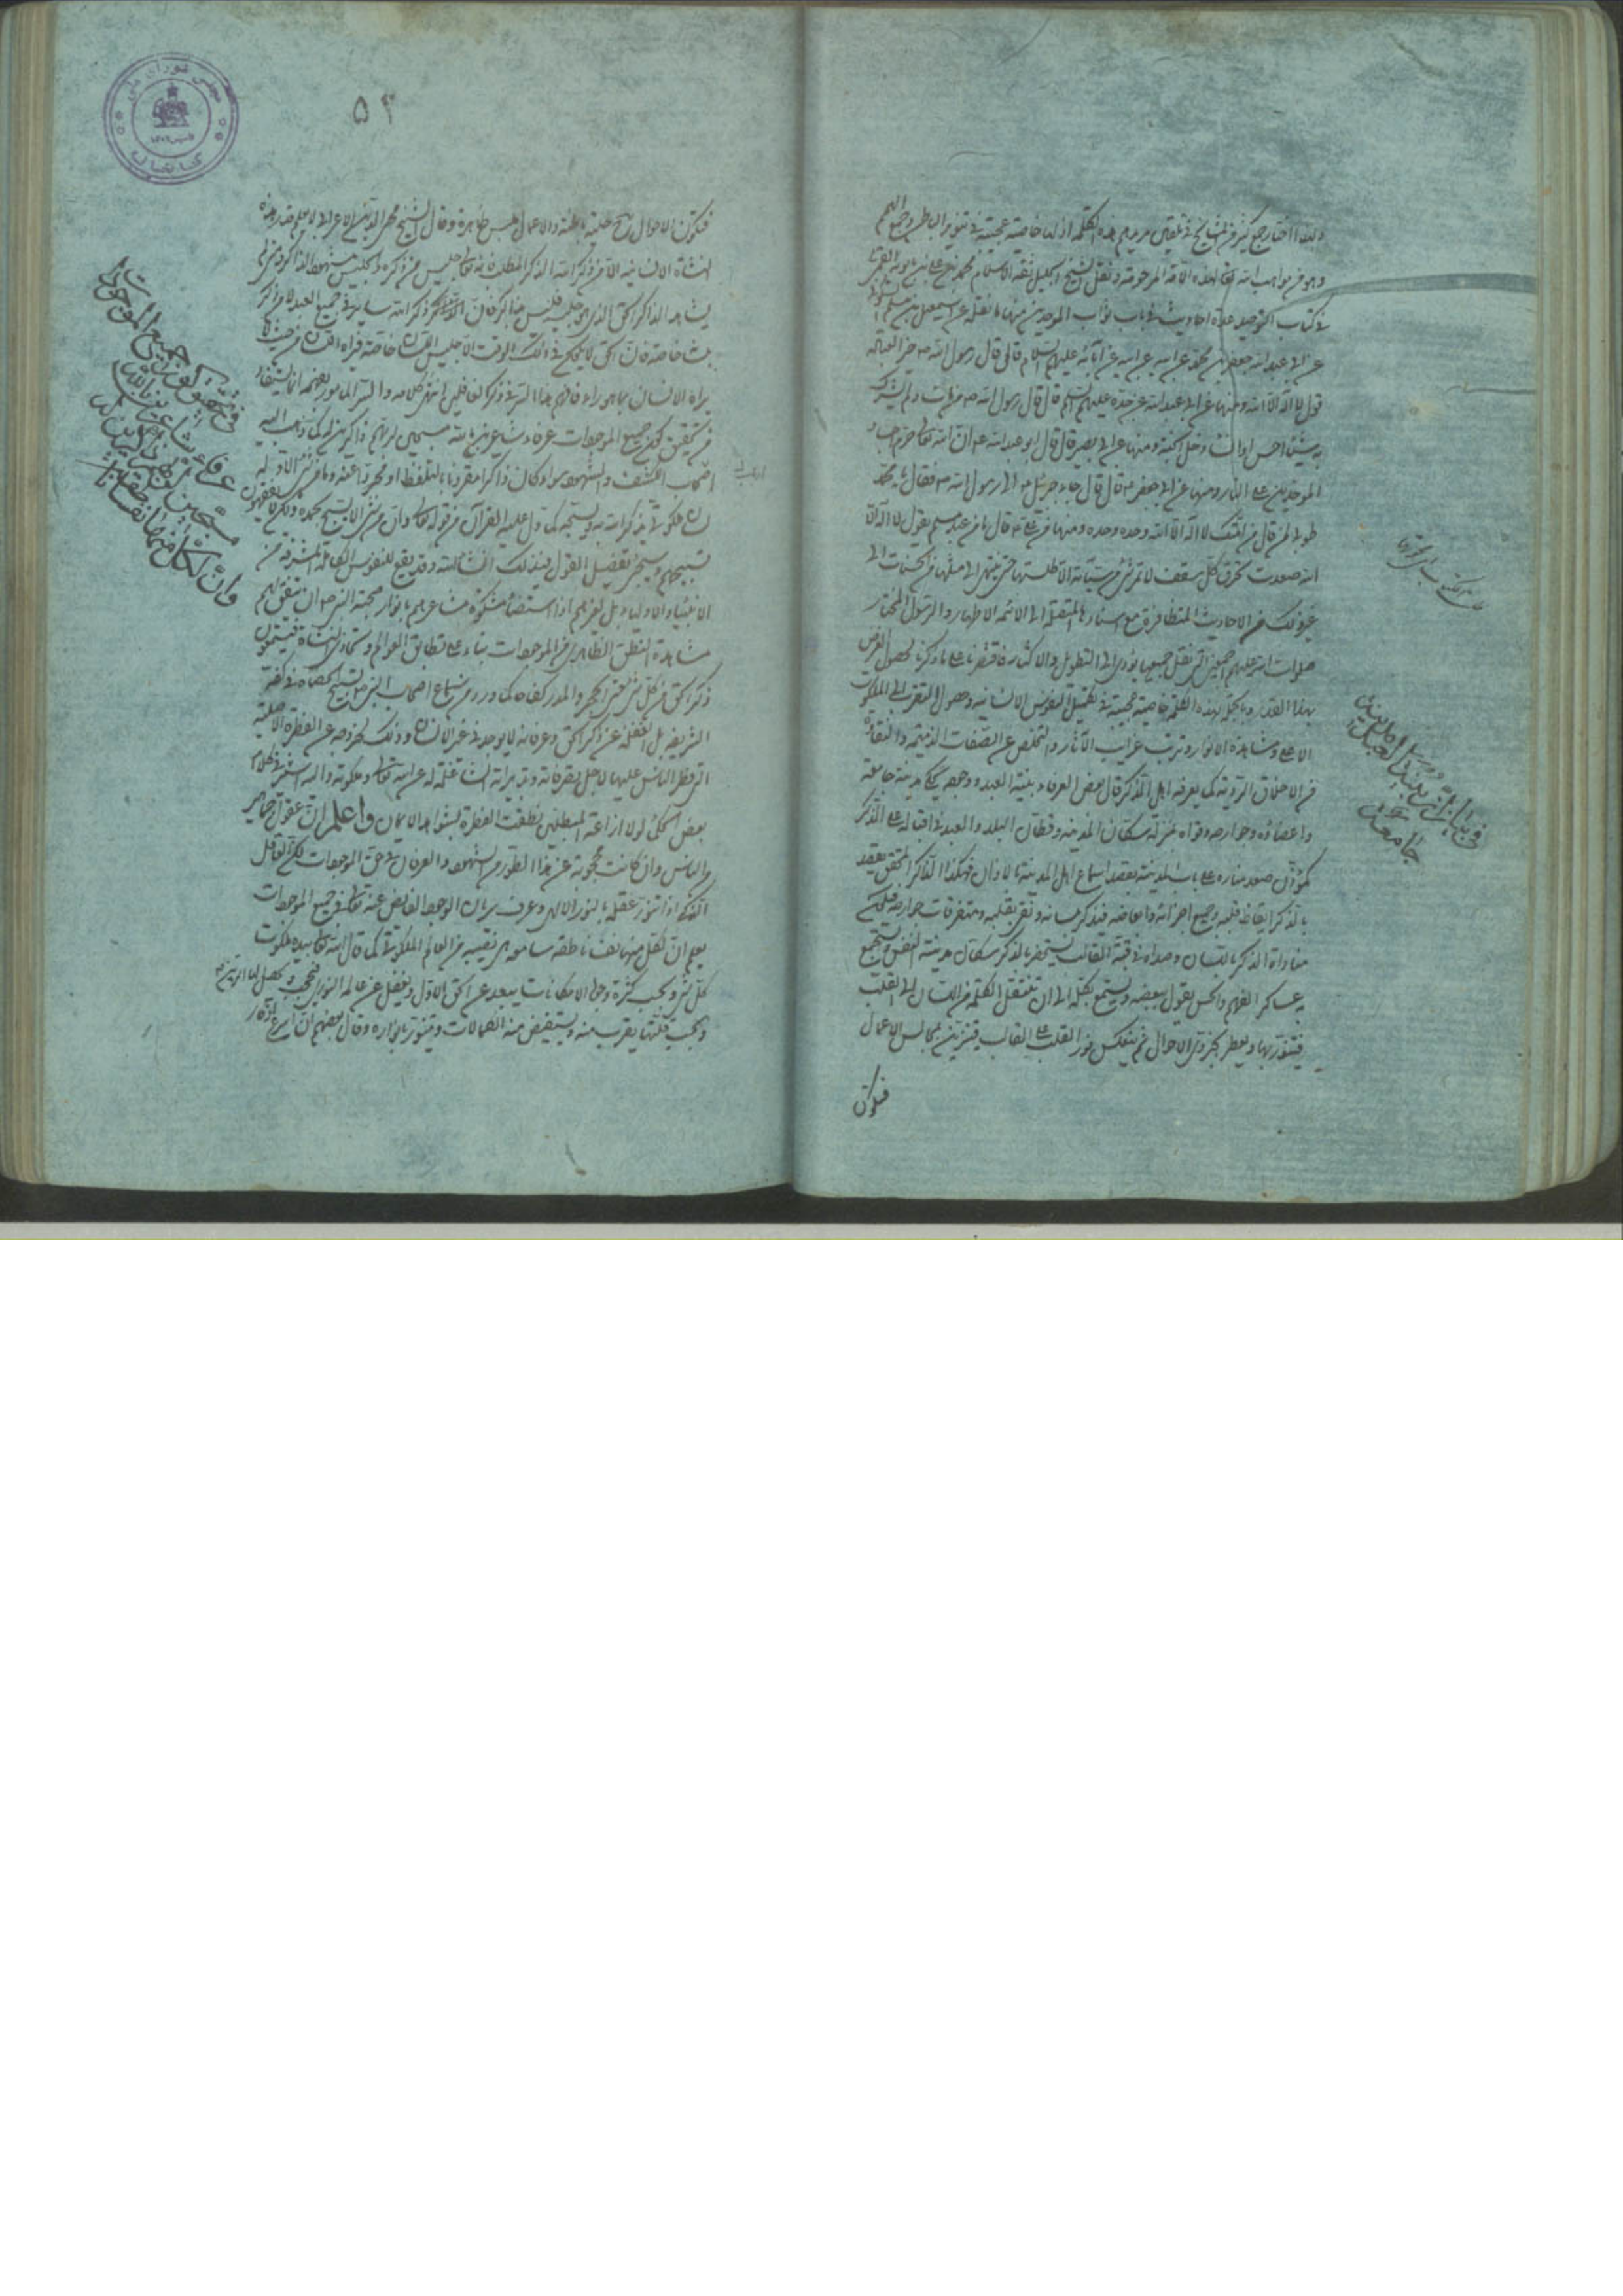 ولهذا اختار جمع كثير من المشايخ في تلقين مريديهم هذه الكلمة اذ لها خاصية عجيبة في تنوير الباطن وجمع الهمم
وهو من مواهب الله تعالى لهذه الامة المرحومة ونقل الشيخ الجليل ثقة الاسلام محمد بن علي بن بابويه القمي
في كتاب التوحيد عدة احاديث في باب ثواب الموحدين منها ما نقله عن اسمعيل بن مسلم
عن ابي عبدالله جعفر بن محمد عن ابيه عن ابيه عن آبائه عليهم السلام قال قال رسول الله ص خير العبادة
قول لا اله الا الله ومنها عن ابي عبدالله عن جده عليهم السلم قال قال رسول الله ص من مات ولم يشرك
به شيئا احسن او اساء دخل الجنة ومنها عن ابي بصير قال قال ابو عبدالله ع ان الله تعالى حرم اجساد
الموحدين على النار ومنها عن ابي جعفر ع قال قال جاء جبرئيل الى رسول الله ص فقال يا محمد
طوبى لمن قال من امتك لا اله الا الله وحده وحده ومنها قال ما من عبد مسلم يقول لا اله الا
الله صعدت تخرق كل سقف لا تمر بشيء من سيئاته الا طلستها حتى ينتهي الى مثلها من الحسنات الى
غير ذلك من الاحاديث المتظافرة مع اسنادها المتصلة الى الائمة الاطهار والرسول المختار
صلوات الله عليهم اجمعين التي نقل جميعها يؤدي الى التطويل والاكثار فاقتصرنا على ما ذكرنا لحصول الغرض
بهذا القدر وبالجملة لهذه الكلمة خاصية عجيبة في تكميل النفوس الانسانية وحصول التقرب الى الملكوت
الاعلى ومشاهدة الانوار وترتب غرايب الآثار والتخلص عن الصفات الذميمة والنقاوة
من الاخلاق الردية كما يعرفه اهل الذكر قال بعض العرفاء بنية العبد ووجوده يحكي مدينة جامعة
واعضاؤه وجوارحه وقواه بمنزلة سكان المدينة وقطان البلد والعبد في اقباله على الذكر
كمؤذن صعد منارة على باب المدينة يقصد اسماع اهل المدينة بالاذان فهكذا الذاكر المحقق يقصد
بالذكر ايقاظ قلبه وجميع اجزائه وابعاضه فيذكر بلسانه
مناداة الذكر باللسان وصداه في قبة القالب يستحضر بالذكر سكان مدينة النفس ويستجمع
به عساكر الفهم والحس يقول ببعضه ويستمع بكله الى ان تنتقل الكلمة من اللسان الى القلب
فيتنور بها ويظفر بجدوى الاحوال ثم ينعكس نور القلب على القالب فيتزين بمحاسن الاعمال
فتكون
جامعة
۵۲
فتكون الاحوال حلية باطنه والاعمال ملبس ظاهره وقال الشيخ محيي الدين الاعرابي لا يعلم قدر هذه
النشأة الانسانية الا من ذكر الله الذكر المطلوب فانه تعالى جليس من ذكره والجليس مشهود للذاكر ومتى لم
يشاهد الذاكر الحق الذي هو جليسه فليس بذاكر فان ذكر الله سار في جميع العبد لا من ذكره
بلسانه خاصة فان الحق لا يكون في ذلك الوقت الا جليس اللسان خاصة فيراه اللسان من حيث لا
يراه الانسان بما هو راء فافهم هذا السر في ذكر الغافلين انتهى كلامه
في تحقيق كون جميع الموجودات عرفاء شاعرين بالله مسبحين لربهم ذاكرين له كما ذهب اليه
اصحاب الكشف والشهود سواء كان ذاكرا مقرونا بالتلفظ او مجردا عنه وما من شيء الا وله
لسان ملكوتي يذكر الله به ويسبحه كما دل عليه القرآن من قوله تعالى وان من شيء الا يسبح بحمده ولكن لا تفقهون
تسبيحهم وسيجيء تفصيل القول في ذلك انشاء الله وقد يقع للنفوس الكاملة المشرفة من
الانبياء والاولياء بل لغيرهم اذا استضاء مشكوة مشاعرهم بانوار صحبة النبي ص ان يتفق لهم
مشاهدة النطق الظاهري من الموجودات بناء على تطابق العوالم وتحاذي النشاة فيسمعون
ذكر الحق من كل شيء يعني الحجر والمدر كفاحا كما ورد من سماع اصحاب النبي ص تسبيح الحصاة في كفه
الشريفة بل الغفلة عن ذكر الحق وعرفانه لا يوجد في غير الانسان وذلك لخروجه عن الفطرة الاصلية
التي فطر الناس عليها لاجل تصرفاته وتدبيراته الشاغلة له عن الله تعالى وملكوته واليه اشير في كلام
بعض الحكماء لولا ازاغة المبطلين نطقت الفطرة بشواهد الايمان واعلم ان عقول جماهير
الناس وان كانت محجوبة عن هذا الطور من الشهود والعرفان في حق الموجودات لكن العاقل
الذكي اذا تنور عقله بالنور الالهي وعرف سريان الوجود الفايض عنه تعالى في جميع الموجودات
يعلم ان لكل منها نفسا ناطقة سامعة هي نصيبه من العالم الملكوتي كما قال الله تعالى بيده ملكوت
كل شيء وبحسب كثرة وجوه الامكانات يبعد عن الحق الاول ويغفل عن عالمه النوري
وبحسب قلتها يقرب منه ويستفيض منه الكمالات ويتنور بانواره وقال بعضهم
في تحقيق كون جميع الموجودات
عرفاء شاعرين بالله
مسبحين لربهم ذاكرين له
وان لكل منها نفسا ناطقة
مجلس شورای ملی
کتابخانه